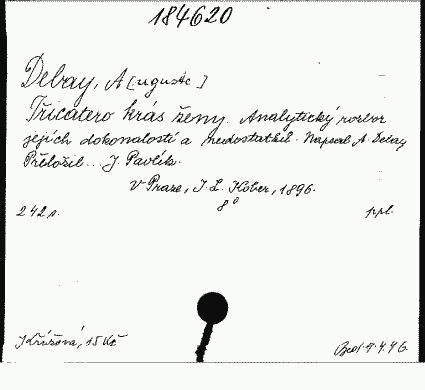 184620
Debay, A[uguste]
Třicatero krás ženy. Analytický rozbor
jejich dokonalostí a nedostatků. Napsal A. Debay
Přeložil... J. Pavlík.
V Praze, I. L. Kober, 1896.
8°
242 s. ppl.
Křížová, 15 Kč 9.4.46.